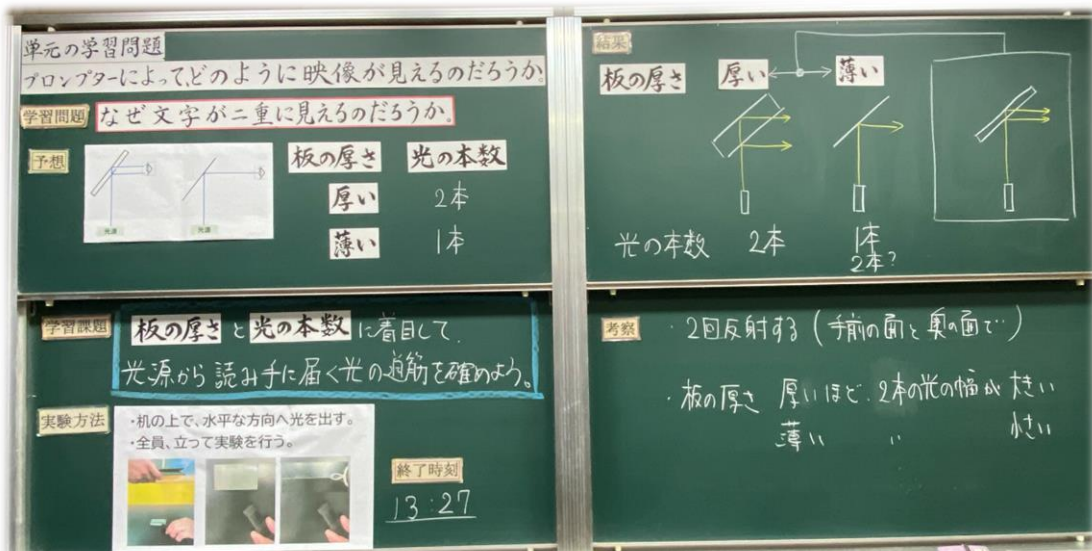 単元の学習問題
プロンプターによって、どのように映像が見えるのだろうか。
学習問題 なぜ文字が二重に見えるのだろうか。
予想
光源 光源
板の厚さ 光の本数
厚い 2本
薄い 1本
学習課題 板の厚さと光の本数に着目して、
光源から読み手に届く光の道筋を確めよう。
実験方法
・机の上で、水平な方向へ光を出す。
・全員、立って実験を行う。
終了時刻
13:27
結果
板の厚さ 厚い 薄い
光の本数 2本 1本
2本?
考察 ・2回反射する(手前の面と奥の面で)
・板の厚さ 厚いほど 2本の光の幅が 大きい
薄い 〃 小さい